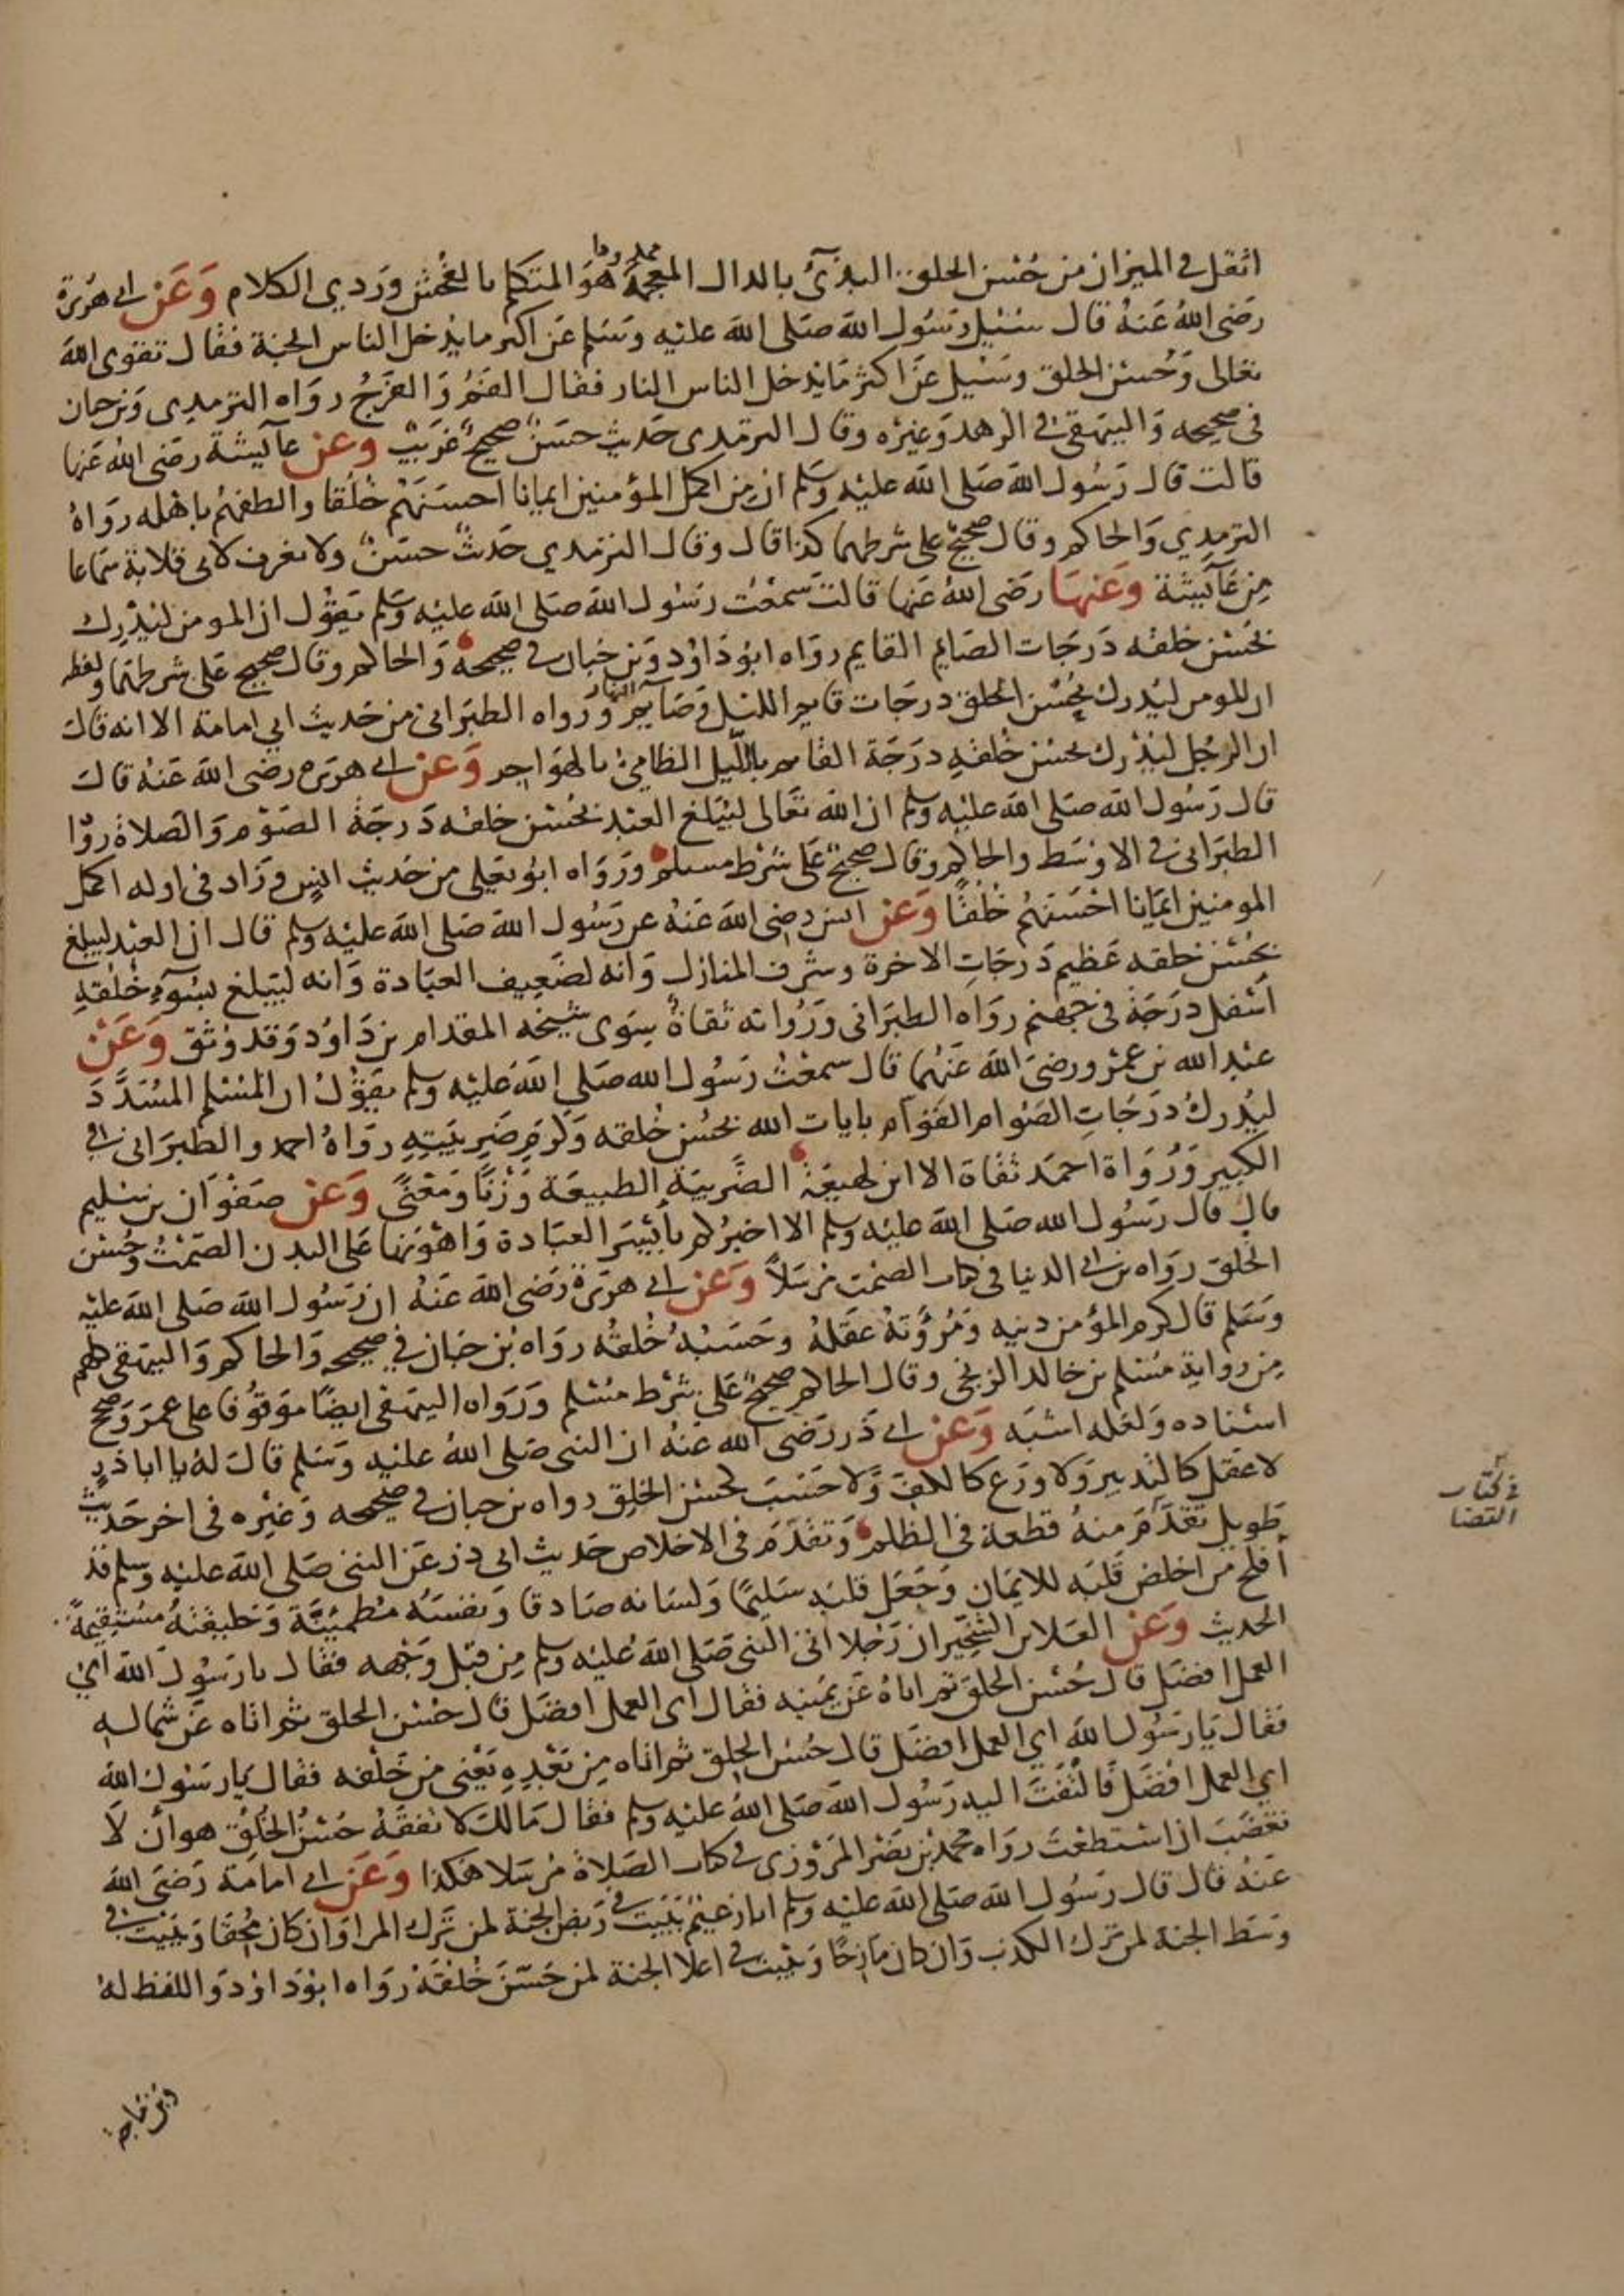 اثقل في الميزان من حسن الخلق البذئ بالدال المعجمة ممدودا هو المتكلم بالفحش وردي الكلام وعن ابي هريرة
رضي الله عنه قال سئل رسول الله صلى الله عليه وسلم عن اكثر ما يدخل الناس الجنة فقال تقوى الله
تعالى وحسن الخلق وسئل عن اكثر ما يدخل الناس النار فقال الفم والفرج رواه الترمذي وبن حبان
في صحيحه والبيهقي في الزهد وغيره وقال الترمدي حديث حسن صحيح غريب وعن عآيشة رضي الله عنها
قالت قال رسول الله صلى الله عليه وسلم ان من اكمل المؤمنين ايمانا احسنهم خلقا والطفهم باهله رواه
الترمدي والحاكم وقال صحيح على شرطهما كذا قال وقال الترمدي حديث حسن ولا نعرف لابي قلابة سماعا
من عآيشة وعنها رضي الله عنها قالت سمعت رسول الله صلى الله عليه وسلم يقول ان المومن ليدرك
بحسن خلقه درجات الصايم القايم رواه ابو داود وبن حبان في صحيحه والحاكم وقال صحيح على شرطهما ولفظه
ان المومن ليدرك بحسن الخلق درجات قايم الليل وصايم النهار ورواه الطبراني من حديث ابي امامة الا انه قال
ان الرجل ليدرك بحسن خلقه درجة القايم بالليل الظامئ بالهواجر وعن ابي هريرة رضي الله عنه قال
قال رسول الله صلى الله عليه وسلم ان الله تعالى ليبلغ العبد بحسن خلقه درجة الصوم والصلاة رواه
الطبراني في الاوسط والحاكم وقال صحيح على شرط مسلم ورواه ابو يعلى من حديث انس وزاد في اوله اكمل
المومنين ايمانا احسنهم خلقا وعن انس رضي الله عنه عن رسول الله صلى الله عليه وسلم قال ان العبد ليبلغ
بحسن خلقه عظيم درجات الاخرة وشرف المنازل وانه لضعيف العبادة وانه ليبلغ بسوء خلقه
اسفل درجة في جهنم رواه الطبراني ورواته ثقاة سوى شيخه المقدام بن داود وقد وثق وعن
عبد الله بن عمرو رضي الله عنهما قال سمعت رسول الله صلى الله عليه وسلم يقول ان المسلم المسدد
ليدرك درجات الصوام القوام بايات الله بحسن خلقه وكرم ضريبته رواه احمد والطبراني في
الكبير ورواة احمد ثقاة الا ابن لهيعة الضريبة الطبيعة وزنا ومعنى وعن صفوان بن سليم
قال قال رسول الله صلى الله عليه وسلم الا اخبركم بأيسر العبادة واهونها على البدن الصمت وحسن
الخلق رواه بن ابي الدنيا في كتاب الصمت مرسلا وعن ابي هريرة رضي الله عنه ان رسول الله صلى الله عليه
وسلم قال كرم المؤمن دينه ومروءته عقله وحسبه خلقه رواه بن حبان في صحيحه والحاكم والبيهقي كلهم
من رواية مسلم بن خالد الزنجي وقال الحاكم صحيح على شرط مسلم ورواه البيهقي ايضا موقوفا على عمر وصحح
اسناده ولعله اشبه وعن ابي ذر رضي الله عنه ان النبي صلى الله عليه وسلم قال له يا ابا ذر
لا عقل كالتدبير ولا ورع كالكف ولا حسب كحسن الخلق رواه بن حبان في صحيحه وغيره في اخر حديث
طويل تقدم منه قطعة في الظلم وتقدم في الاخلاص حديث ابي ذر عن النبي صلى الله عليه وسلم قد
في كتاب
القضا
أفلح من اخلص قلبه للايمان وجعل قلبه سليما ولسانه صادقا ونفسه مطمئنة وخليقته مستقيمة
الحديث وعن العلا بن الشخير ان رجلا اتى النبي صلى الله عليه وسلم من قبل وجهه فقال يا رسول الله اي
العمل افضل قال حسن الخلق ثم اتاه عن يمينه فقال اي العمل افضل قال حسن الخلق ثم اتاه عن شماله
فقال يا رسول الله اي العمل افضل قال حسن الخلق ثم اتاه من بعده يعني من خلفه فقال يا رسول الله
اي العمل افضل فالتفت اليه رسول الله صلى الله عليه وسلم فقال مالك لا تفقه حسن الخلق هو أن لا
تغضب ان استطعت رواه محمد بن نصر المروزي في كتاب الصلاة مرسلا هكذا وعن ابي امامة رضي الله
عنه قال قال رسول الله صلى الله عليه وسلم انا زعيم ببيت في ربض الجنة لمن ترك المرا وان كان محقا وببيت في
وسط الجنة لمن ترك الكذب وان كان مازحا وببيت في اعلا الجنة لمن حسن خلقه رواه ابو داود واللفظ له
وابن ماجه